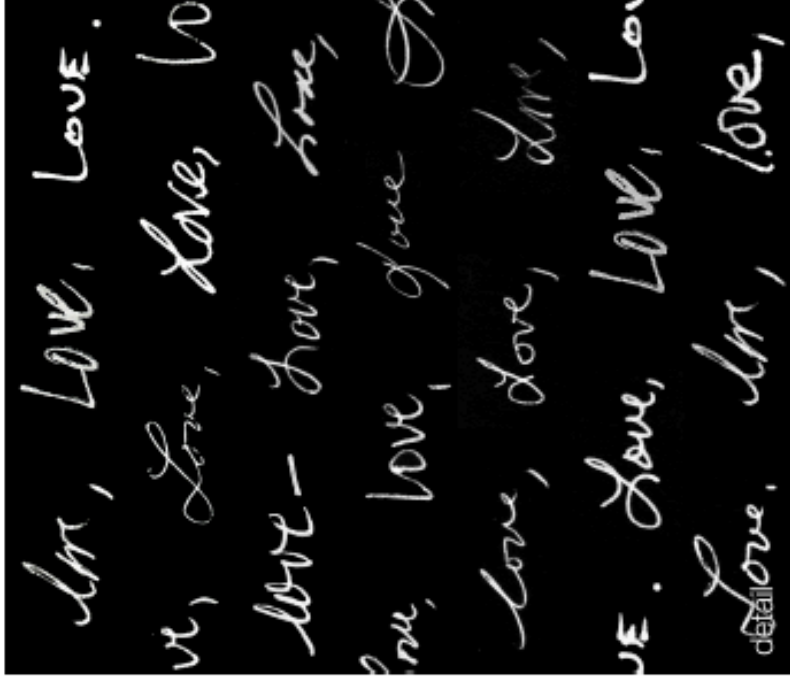 love, Love, LOVE.
ve, Love, Love, Lo
love – Love, Love,
ove, Love, Love
love, Love, Love,
VE. Love, Love, Lov
Love, love, Love,
detail